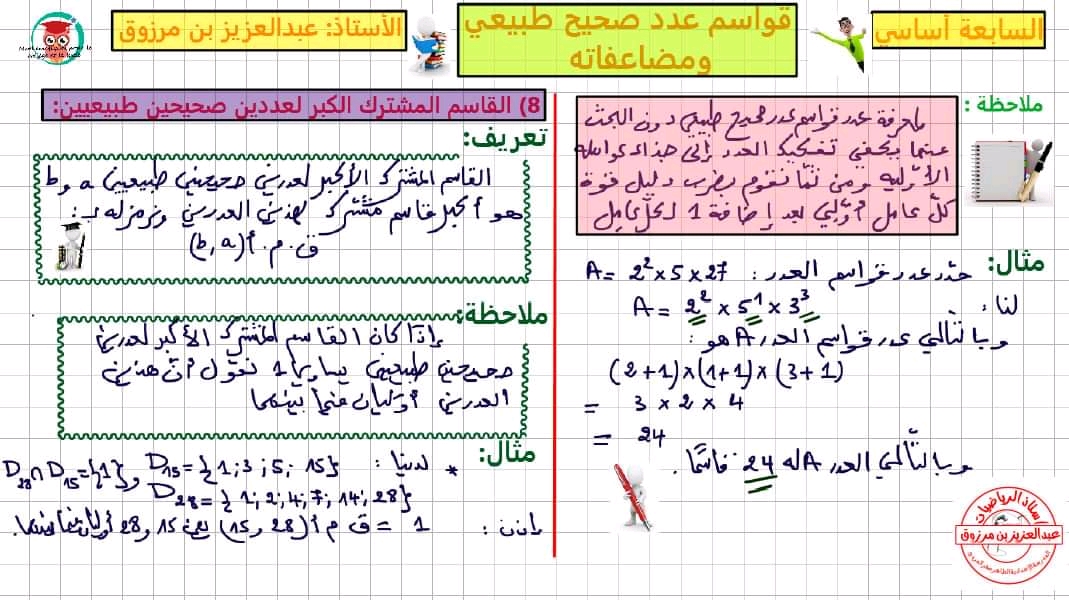 السابعة أساسي
قواسم عدد صحيح طبيعي
ومضاعفاته
الأستاذ: عبدالعزيز بن مرزوق
ملاحظة :
لمعرفة عدد قواسم عدد صحيح طبيعي دون البحث
عنها يكفي تفكيك العدد إلى جذاء عوامله
الأوّلية ومن ثمّ نقوم بضرب دليل قوة
كلّ عامل أوّلي بعد إضافة 1 لكلّ عامل
مثال:
حدّد عدد قواسم العدد : A = 2² × 5 × 27
لنا: A = 2² × 5¹ × 3³
وبالتّالي عدد قواسم العدد A هو :
(2+1)×(1+1)×(3+1)
= 3 × 2 × 4
= 24
وبالتّالي العدد A له 24 قاسمًا.
8) القاسم المشترك الكبر لعددين صحيحين طبيعيين:
تعريف:
القاسم المشترك الأكبر لعددين صحيحين طبيعيين a و b
هو أكبر قاسم مشترك لهذين العددين ونرمز له بـ :
ق . م . أ (b , a)
ملاحظة:
إذا كان القاسم المشترك الأكبر لعددين
صحيحين طبيعيين يساوي 1 نقول أنّ هذين
العددين أوّليان فيما بينهما
مثال:
* لدينا : D₁₅ = {1 ; 3 ; 5 ; 15} و D₂₈ ∩ D₁₅ = {1}
D₂₈ = {1 ; 2 ; 4 ; 7 ; 14 ; 28}
إذن : 1 = ق م أ (28 و 15) يعني 15 و 28 أوليان فيما بينهما.
أستاذ الرياضيات
عبدالعزيز بن مرزوق